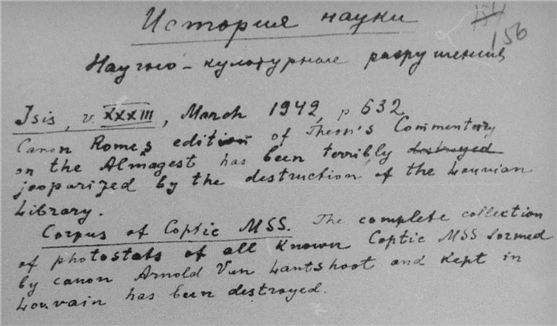 История науки
156
Научно-культурные разрушения
Isis, v. XXXIII, March 1942, p 632
Canon Rome's edition of Theon's Commentary
on the Almagest has been terribly destroyed
jeoparized by the destruction of the Louvian
Library.
Corpus of Coptic MSS. The complete collection
of photostats of all known Coptic MSS formed
by canon Arnold Van Lantshoot and kept in
Louvain has been destroyed.